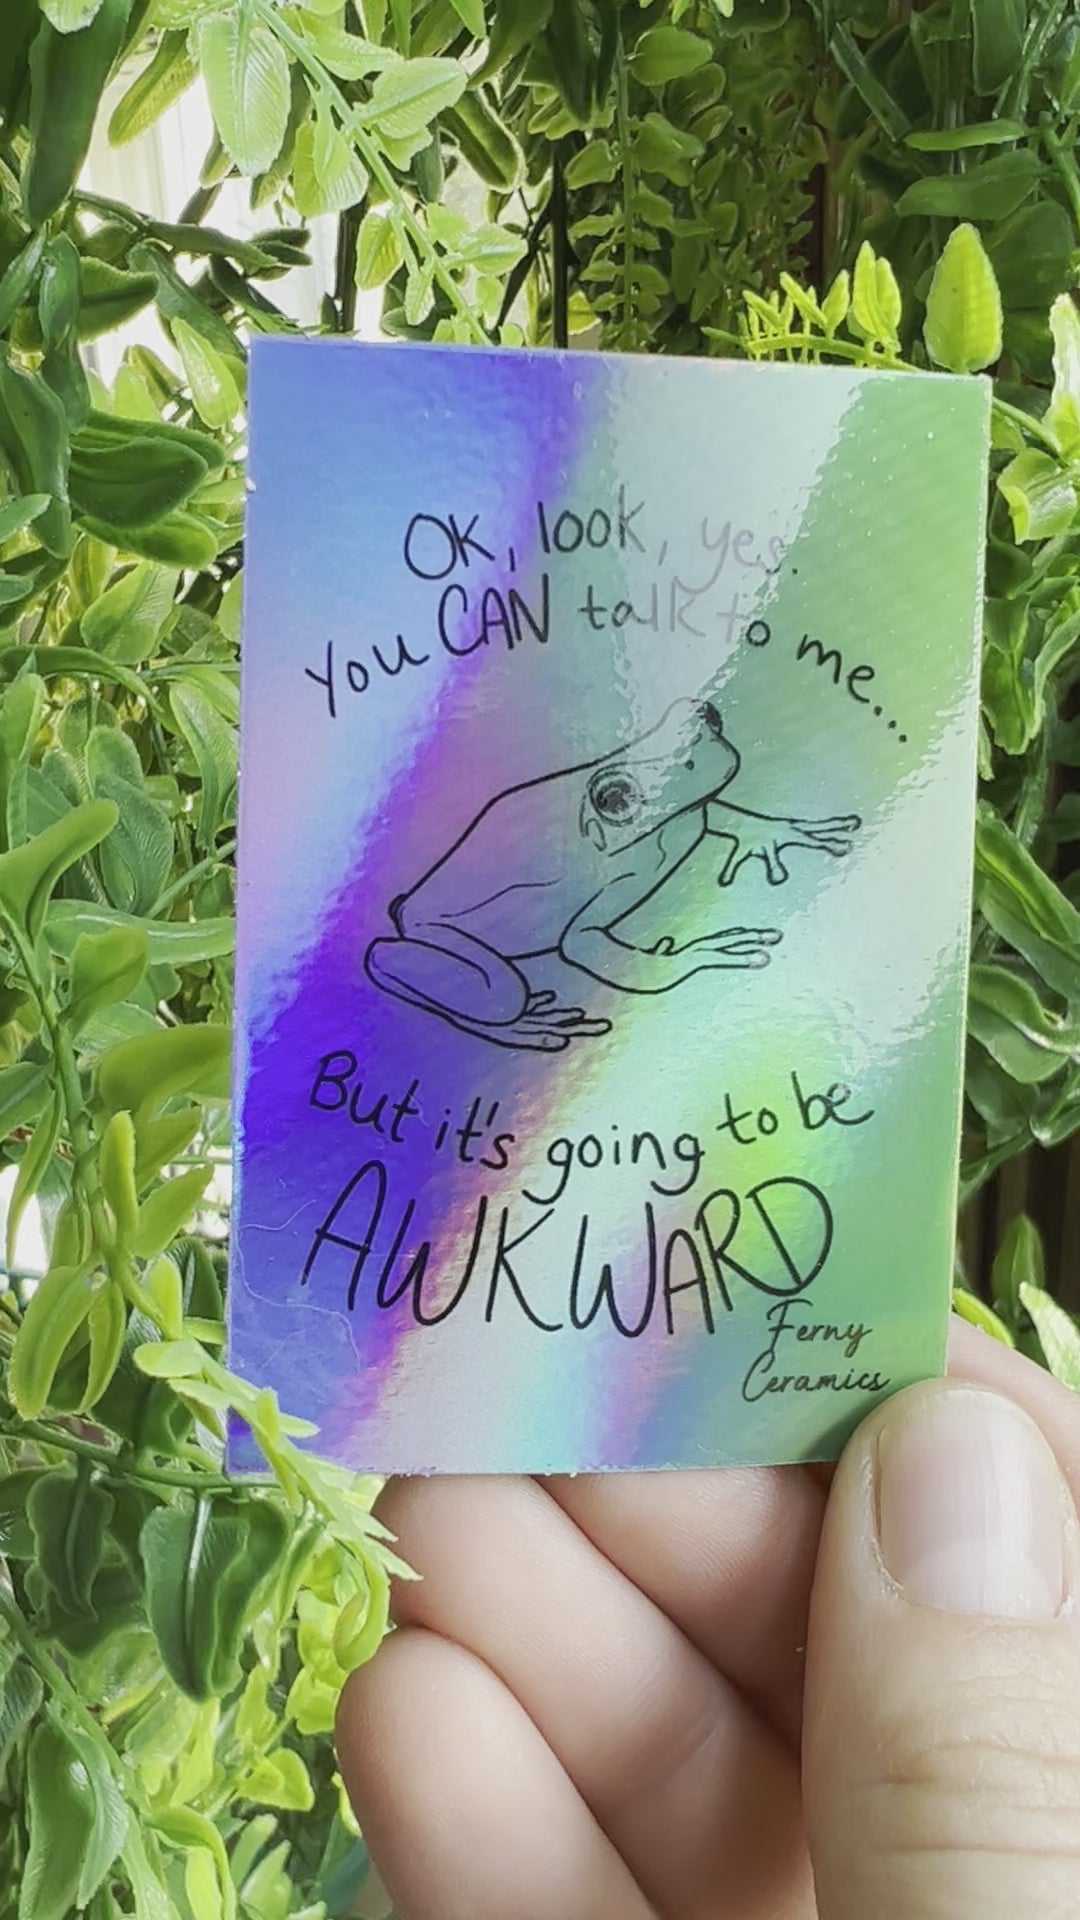 OK, look, yes.
You CAN talk to me...
But it's going to be
AWKWARD
Ferny
Ceramics